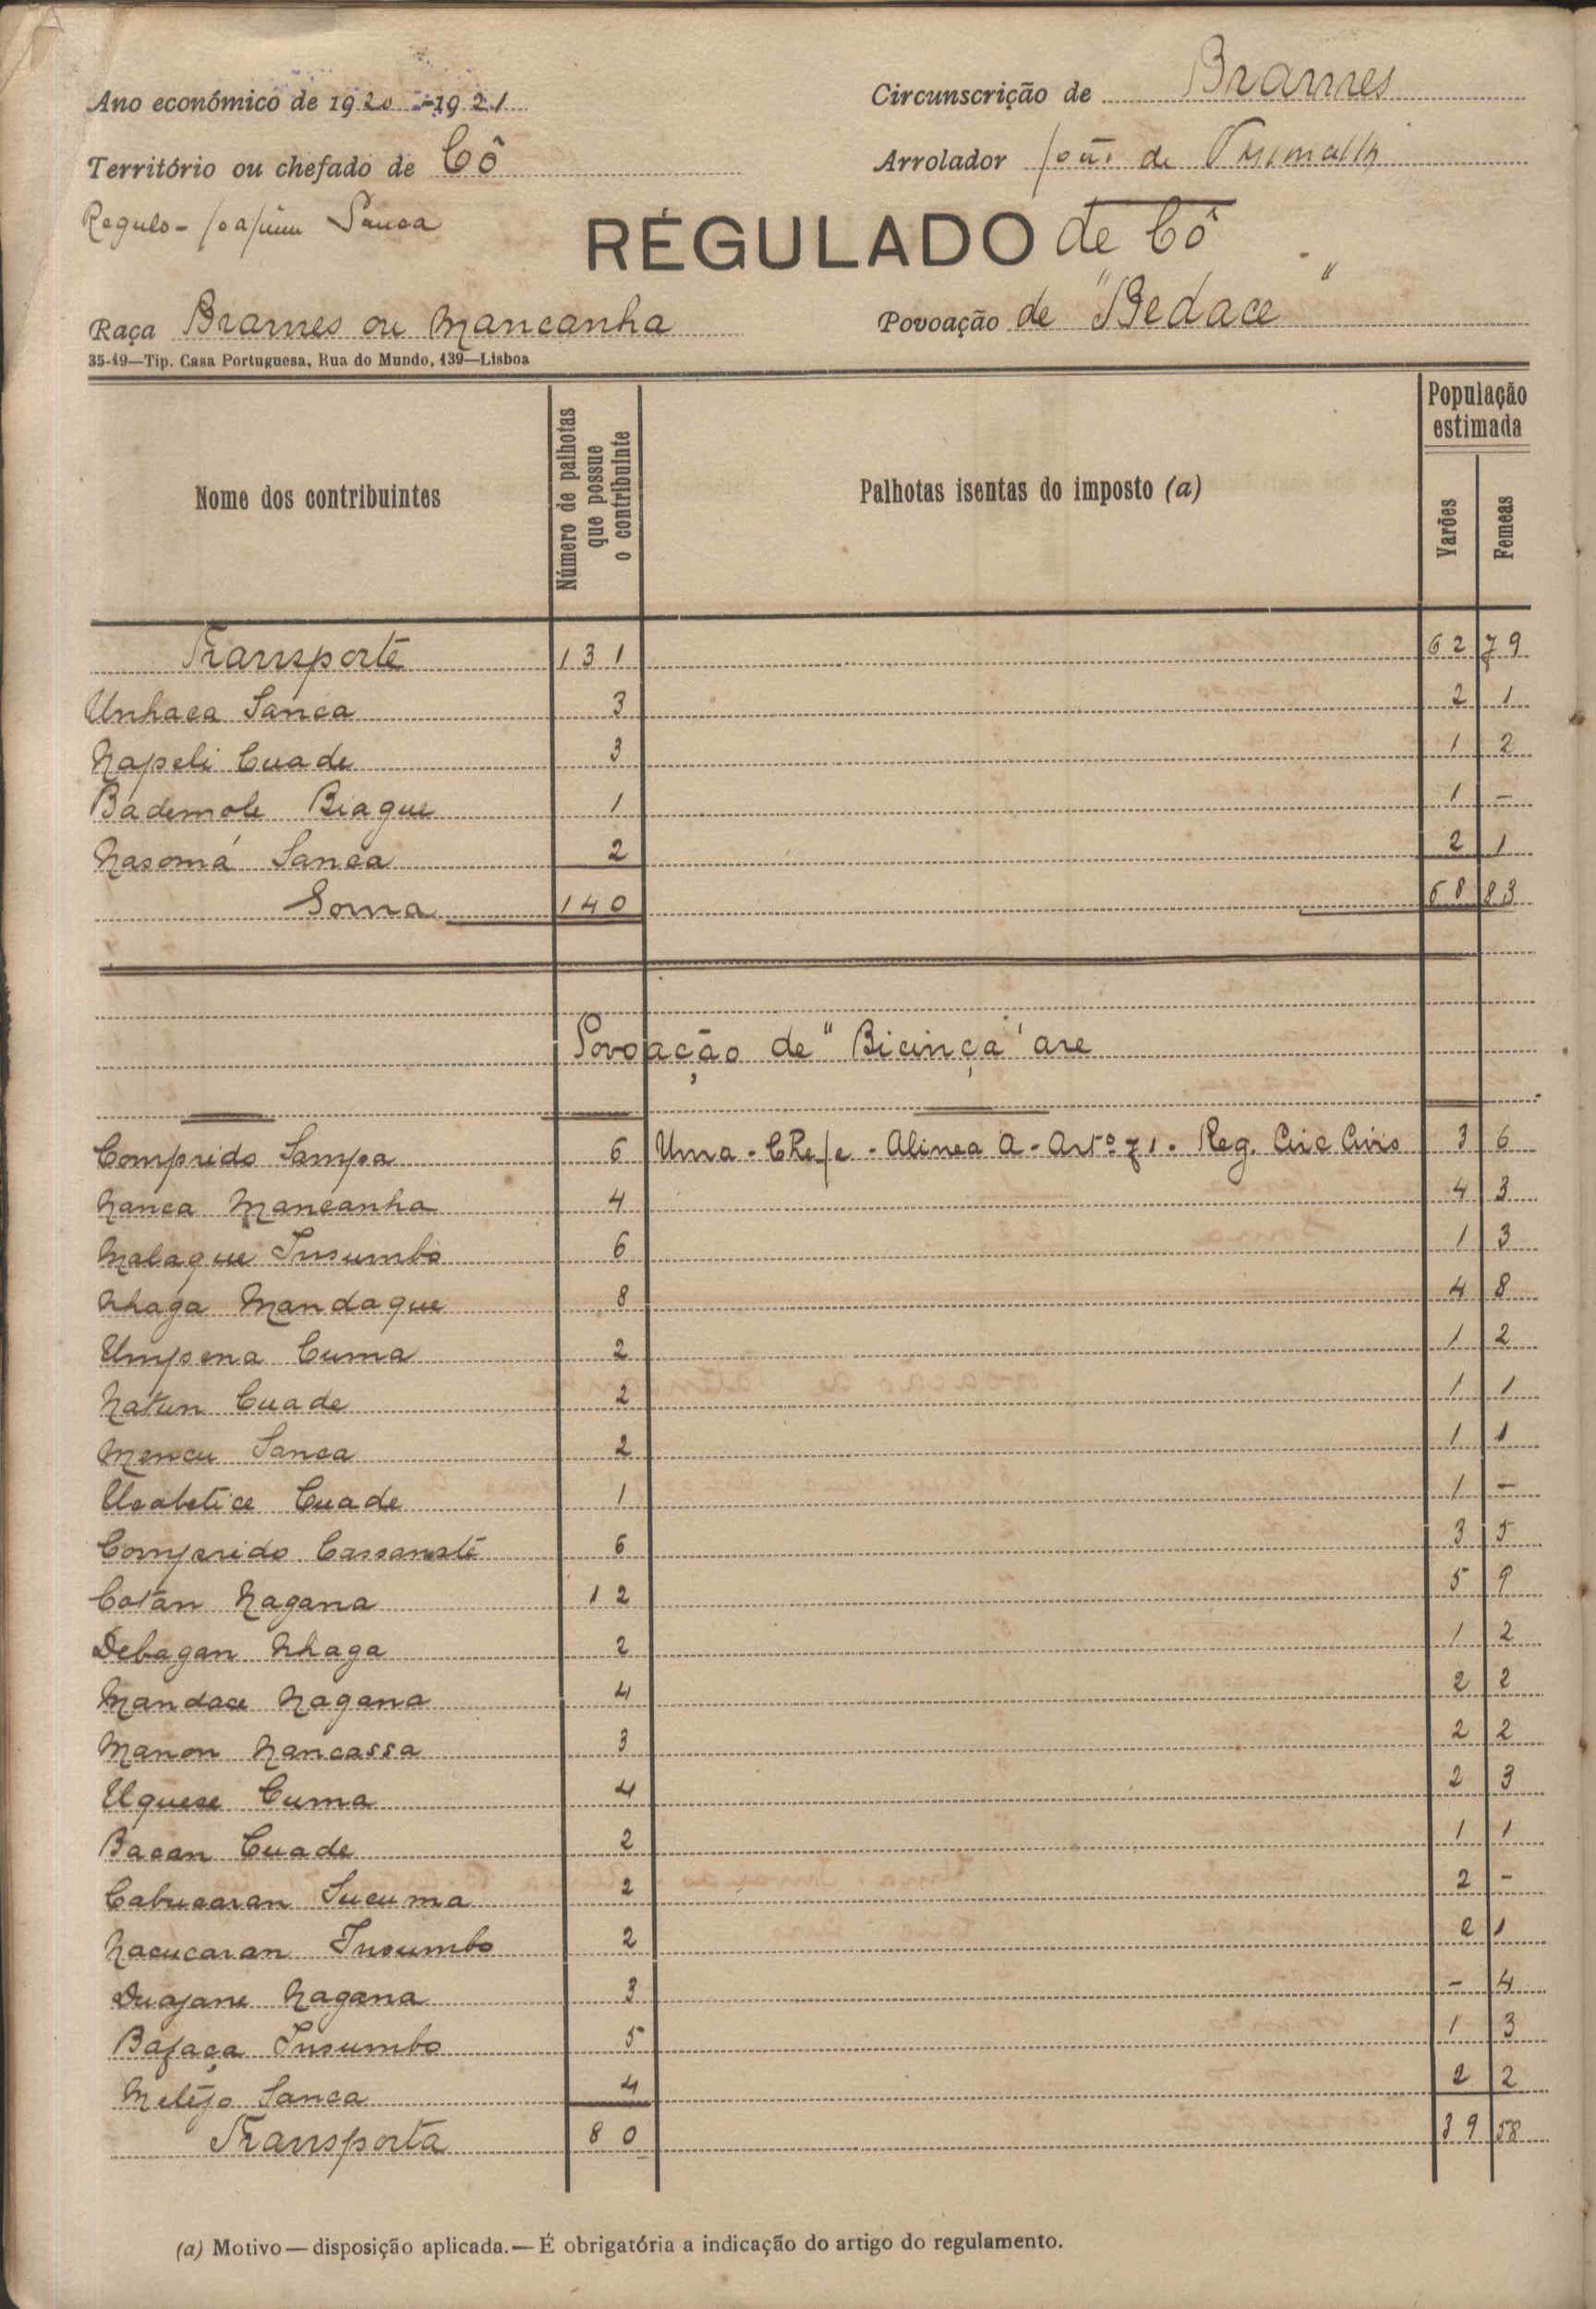 Ano económico de 1920-1921
Circunscrição de Brames
Território ou chefado de Cô
Arrolador João de
Regulo - Joaquim Sanca
RÉGULADO de Cô
Raça Brames ou Mancanha
Povoação de "Bedace"
35-19—Tip. Casa Portuguesa, Rua do Mundo, 139—Lisboa
Nome dos contribuintes
Número de palhotas que possue o contribuinte
Palhotas isentas do imposto (a)
População estimada
Varões
Femeas
Transporte 131 62 79
Unhaca Sanca 3 2 1
Napeli Cuade 3 1 2
Bademole Biague 1 1 -
Nasomá Sanca 2 2 1
Soma 140 68 83
Povoação de "Bicinça" are
Comprido Sampa 6 Uma - Chefe - Alinea A - Artº 71. Reg. Circ Civis 3 6
Nanca Mancanha 4 4 3
Malague Insumbo 6 1 3
Nhaga Mandaque 8 4 8
Umpena Cuma 2 1 2
Natun Cuade 2 1 1
Mencu Sanca 2 1 1
Ucabetice Cuade 1 1 -
Comprido Cassanaté 6 3 5
Cotan Nagana 12 5 9
Debagan Nhaga 2 1 2
Mandace Nagana 4 2 2
Manon Nancassa 3 2 2
Uquese Cuma 4 2 3
Bacan Cuade 2 1 1
Cabucaran Sucuma 2 2 -
Nacucaran Insumbo 2 2 1
Duajane Nagana 3 - 4
Bafaça Insumbo 5 1 3
Meléjo Sanca 4 2 2
Transporta 80 39 58
(a) Motivo—disposição aplicada.—É obrigatória a indicação do artigo do regulamento.